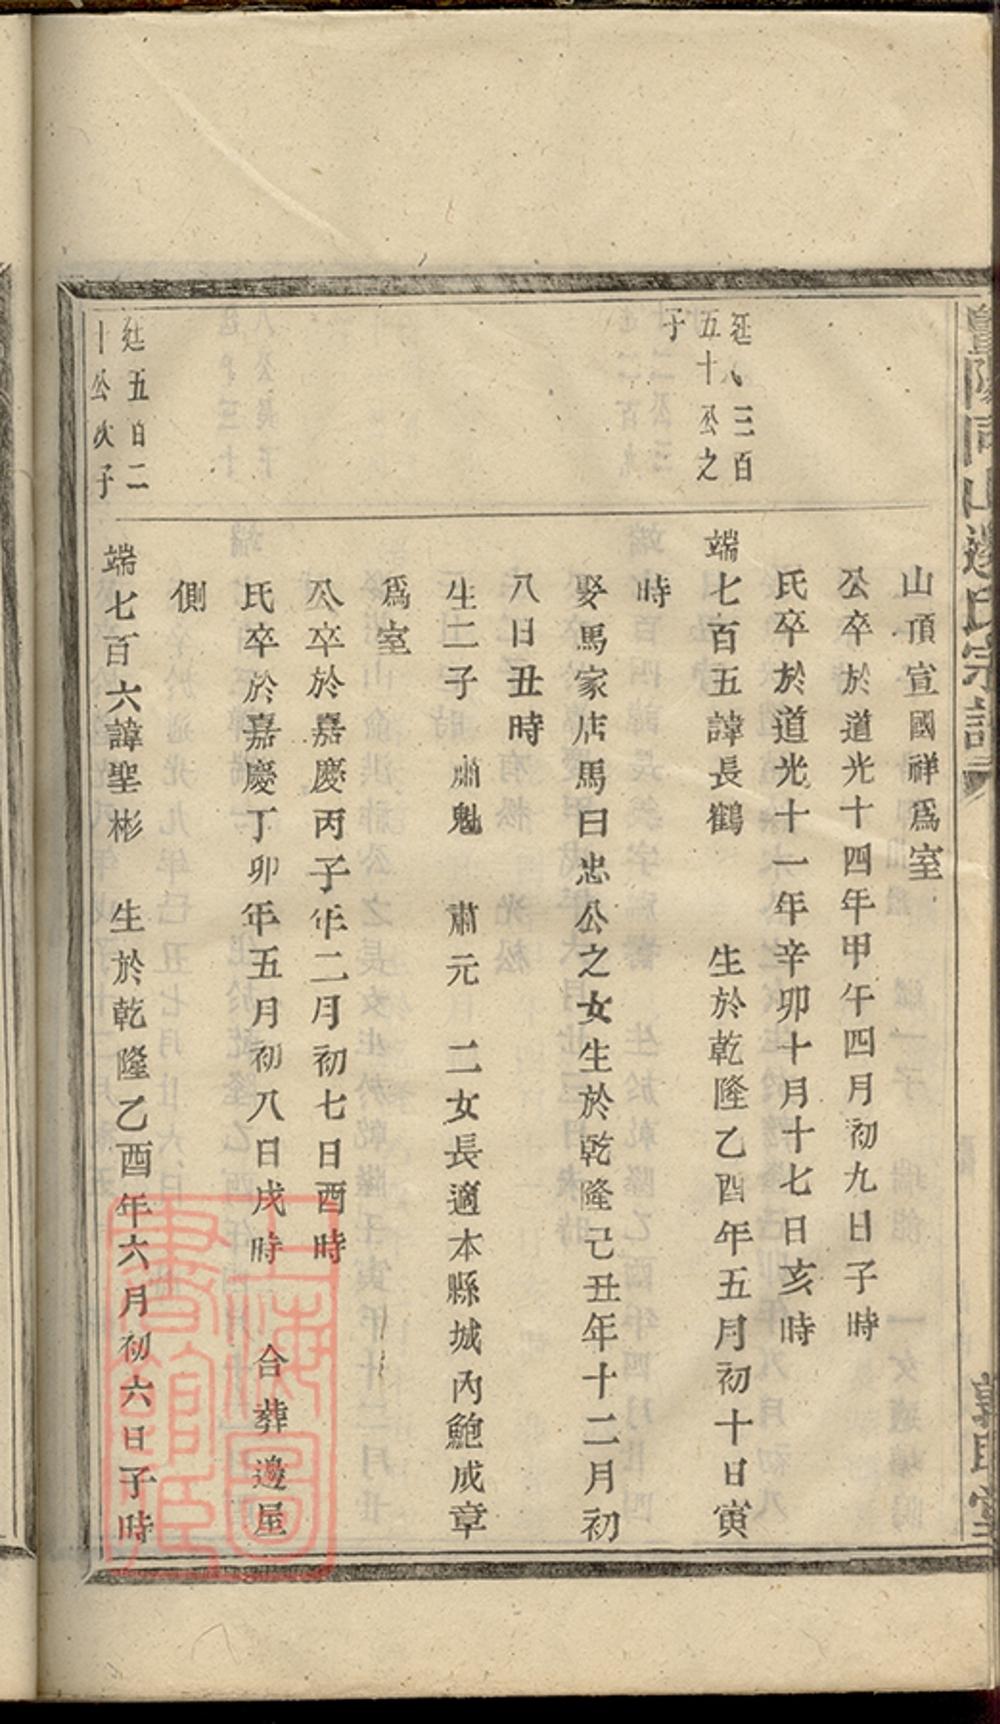 暨陽同山邊氏宗譜
敦睦堂
山頂宣國祥爲室
公卒於道光十四年甲午四月初九日子時
氏卒於道光十一年辛卯十月十七日亥時
三百
五十公之
子
端七百五諱長鶴 生於乾隆乙酉年五月初十日寅
時
娶馬家店馬曰忠公之女生於乾隆己丑年十二月初
八日丑時
生二子 肅魁 肅元 二女長適本縣城內鮑成章
爲室
公卒於嘉慶丙子年二月初七日酉時
氏卒於嘉慶丁卯年五月初八日戌時 合葬邊屋
側
廷五百二
十公次子
端七百六諱聖彬 生於乾隆乙酉年六月初六日子時
上海圖書館藏